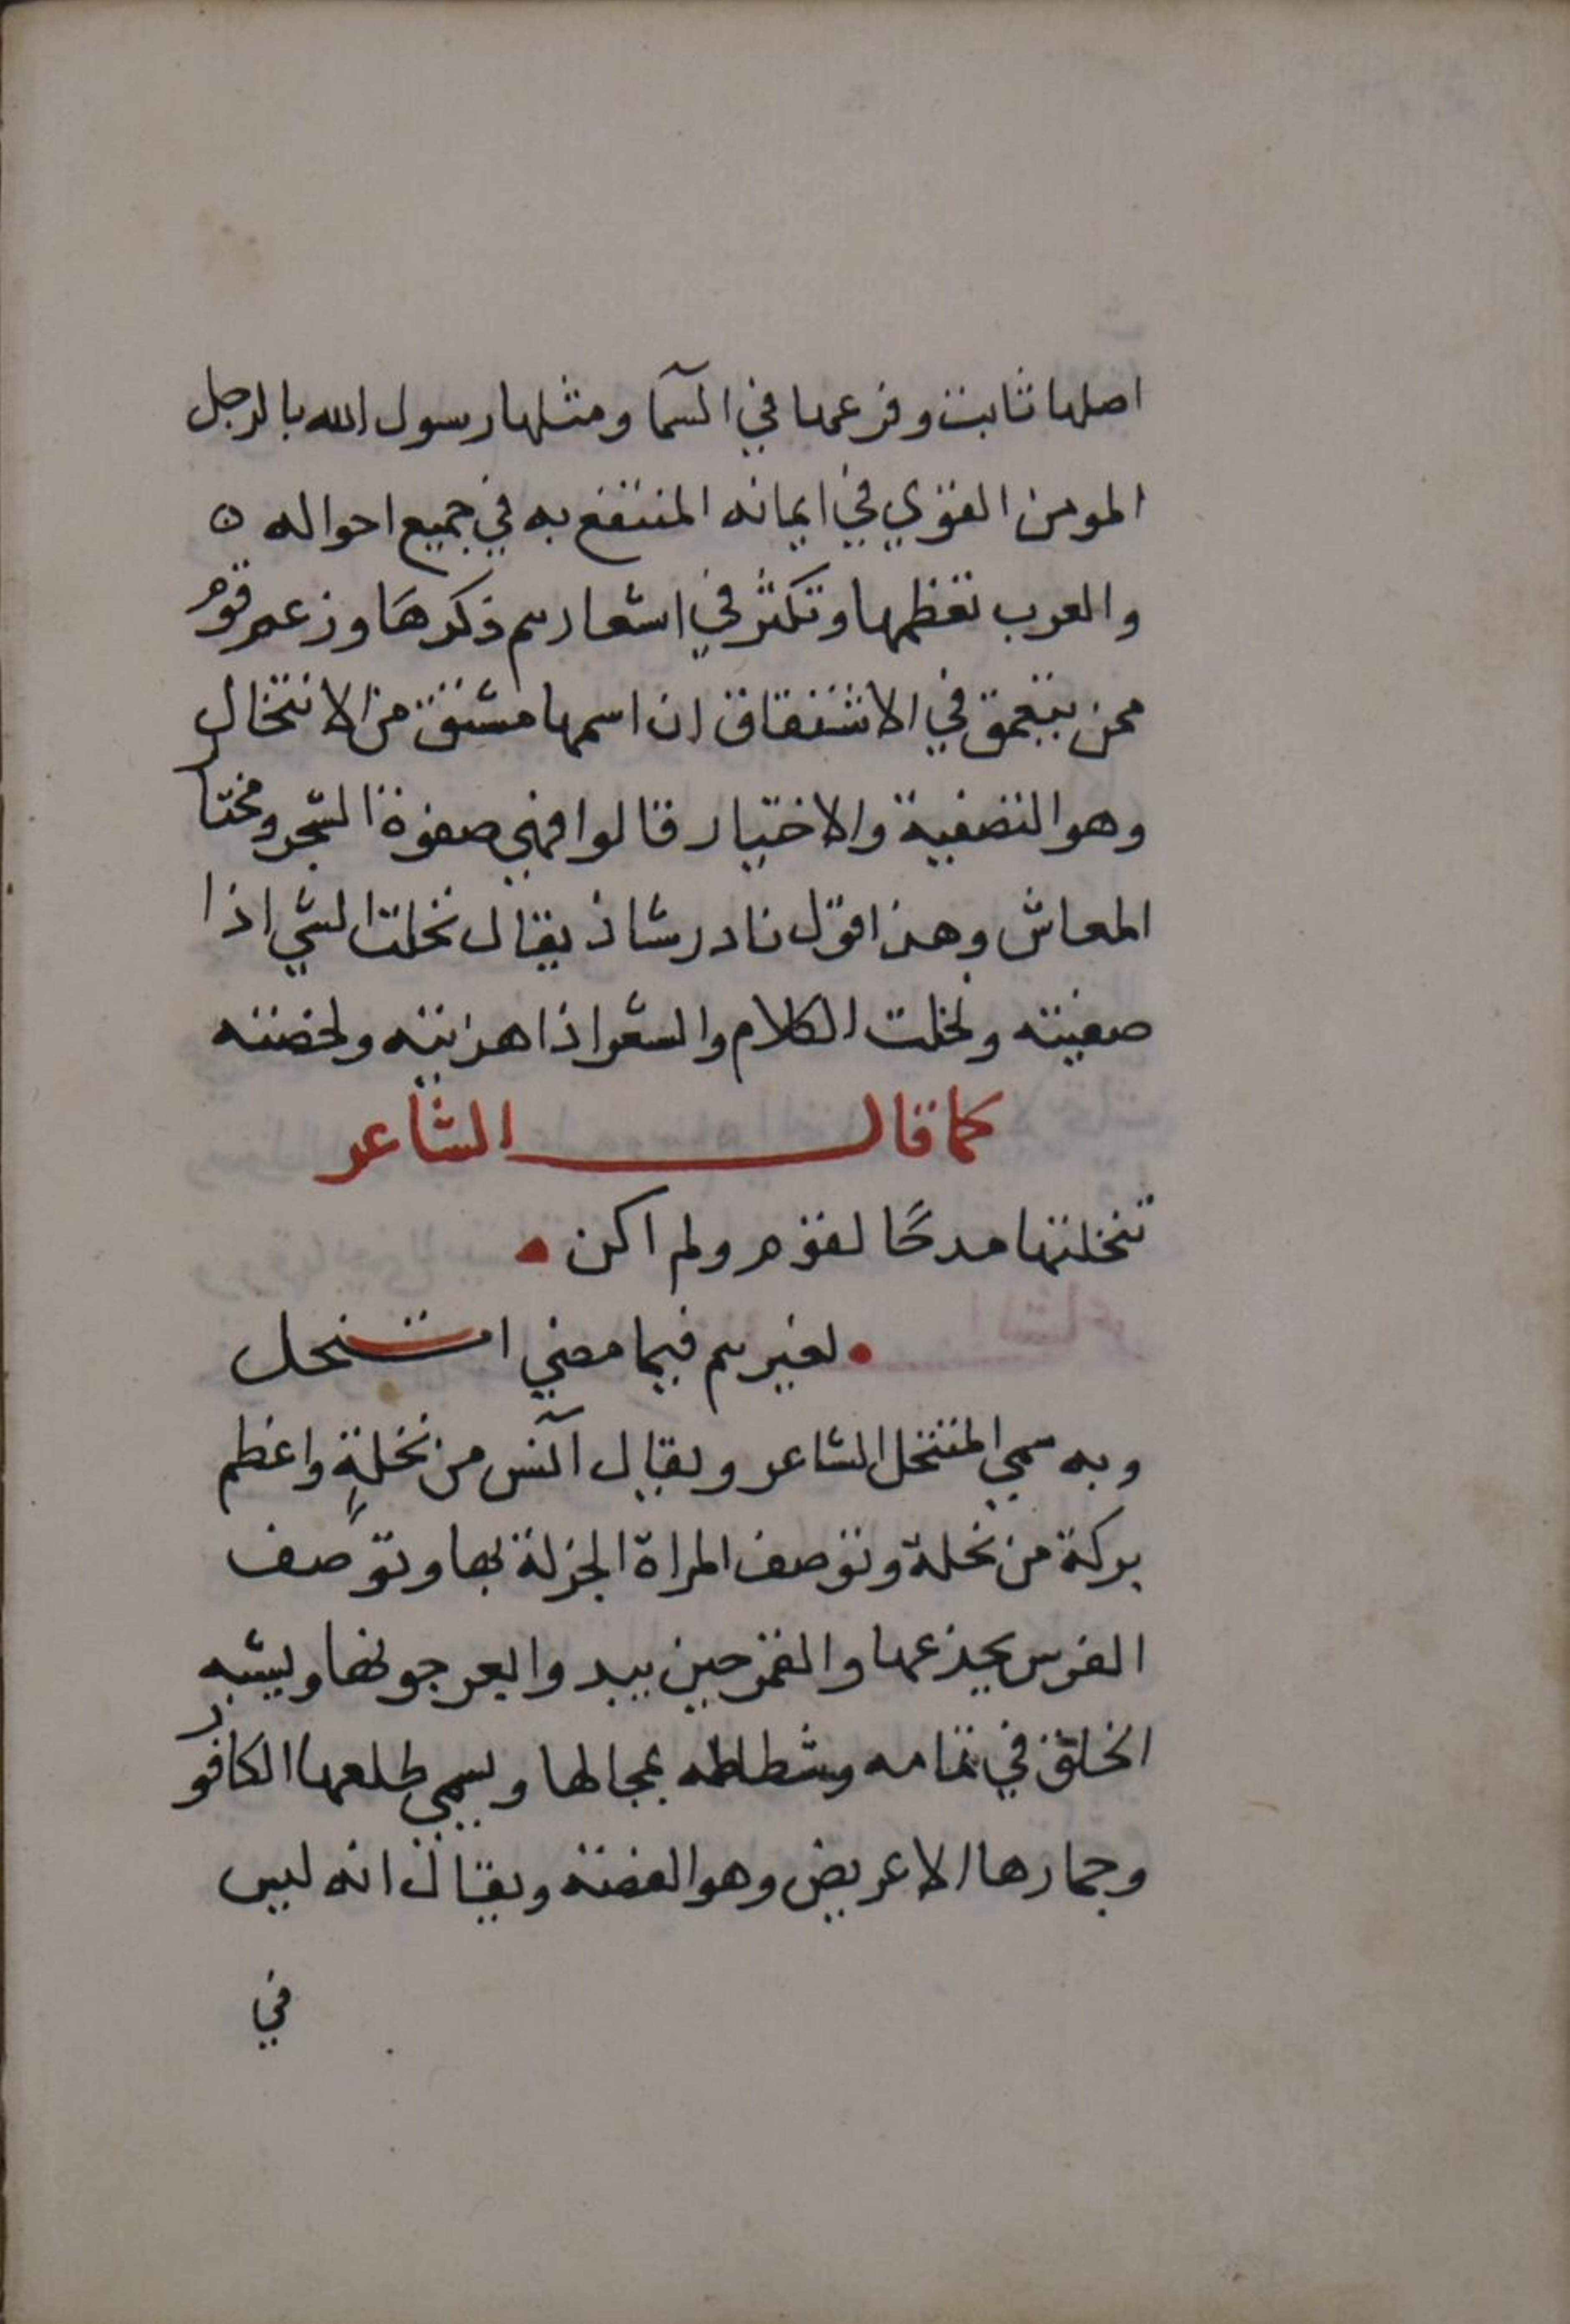 اصلها ثابت وفرعها في السمآ ومثلها رسول الله بالرجل
المومن القوي في ايمانه المنتفع به في جميع احواله ٥
والعرب تعظمها وتكثر في اشعارهم ذكرهَا وزعم قوم
ممن يتعمق في الاشتقاق ان اسمها مشتق من الانتخال
وهو التصفية والاختيار قالوا فهي صفوة الشجر ومختار
المعاش وهذا قول نادر شاذ يقال نخلت الشي اذا
صفيته ونخلت الكلام والشعر اذا هذبته ولخصته
كما قال الشاعر
تنخلتها مدحًا لقوم ولم اكن
لغيرهم فيما مضي اتنحل
وبه سمي المتنخل الشاعر ويقال آنس من نخلةٍ واعظم
بركة من نخلة وتوصف المراة الجزلة بها وتوصف
الفرس بجذعها والقمر حين يبدوا بعرجونها ويشبه
الخلق في تمامه وشطاطه بمجالها ويسمي طلعها الكافور
وجمارها الاعريض وهو الغضة ويقال انه ليس
في